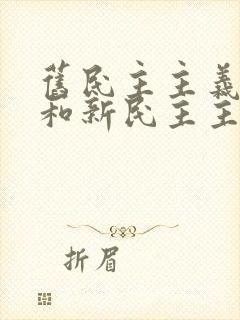 舊民主主義
和新民主主
折眉